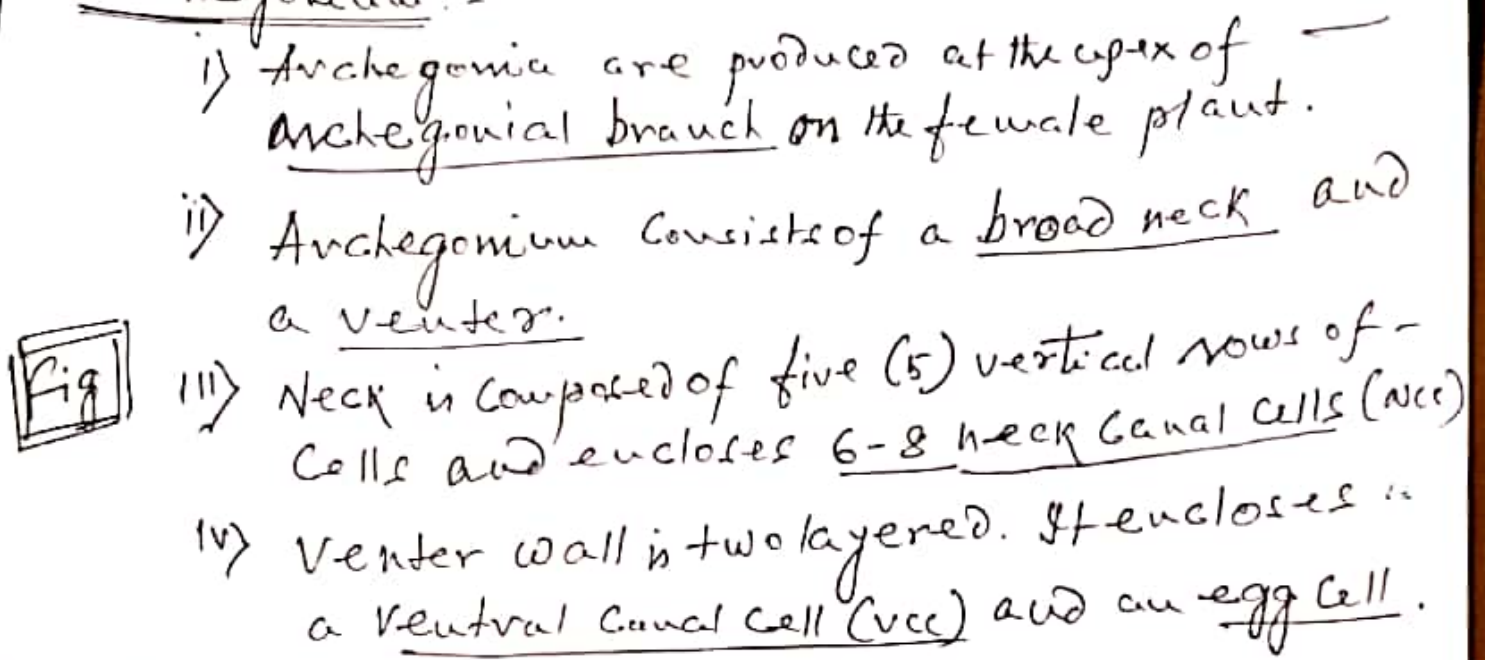 i) Archegonia are produced at the apex of -
archegonial branch on the female plant.
ii) Archegonium consists of a broad neck and
a venter.
Fig
iii) Neck is composed of five (5) vertical rows of -
cells and encloses 6-8 neck canal cells (NCC)
iv) Venter wall is two layered. It encloses
a ventral canal cell (VCC) and an egg cell.